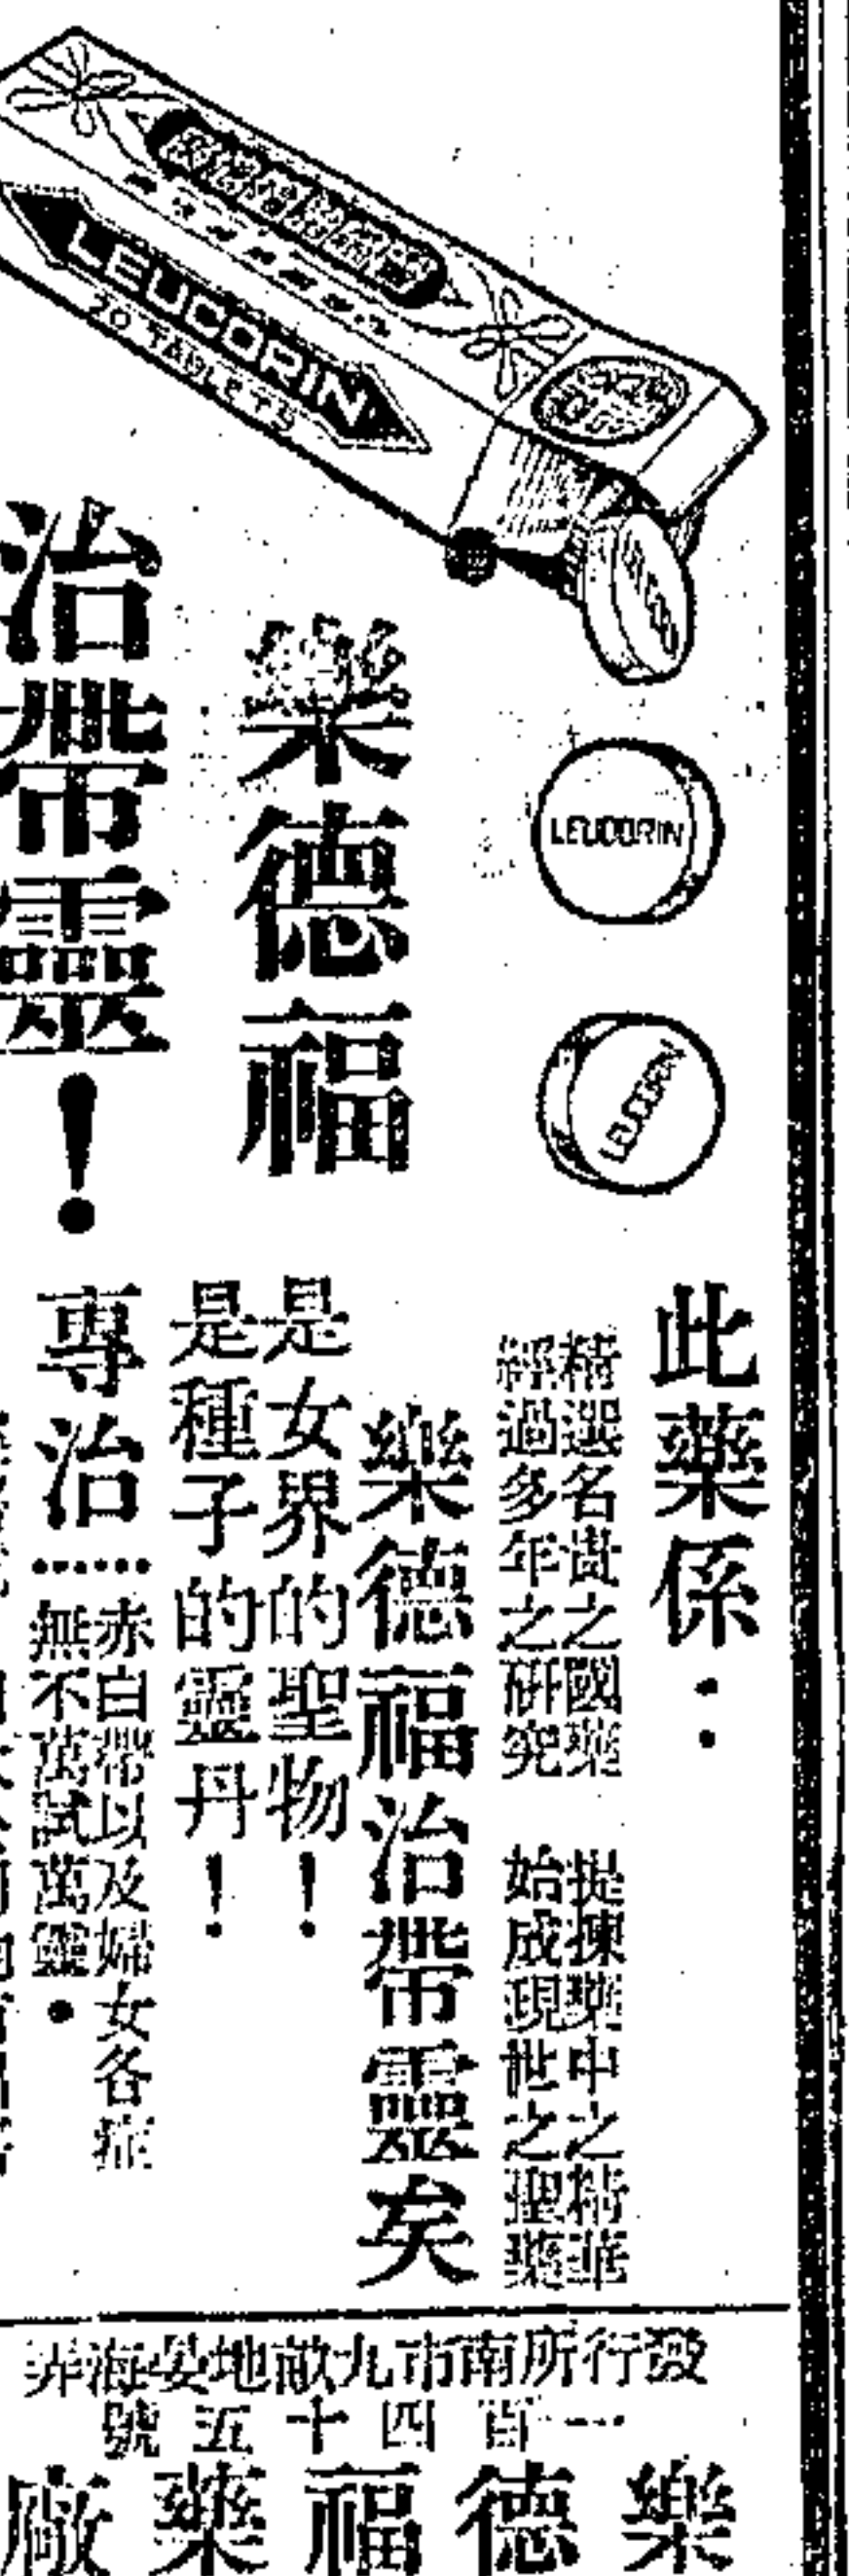 LEUCORIN
20 TABLETS
LEUCORIN
LEUCORIN
樂德福
治帶靈！
此藥係：
精選名貴之國藥　提揀藥中之精華
經過多年之研究　始成現世之聖藥
樂德福治帶靈矣
是女界的聖物！
是種子的靈丹！
專治……
赤白帶以及婦女各症
無不萬試萬靈．
發行所南市九畝地晏海弄
一百四十五號
樂德福藥廠